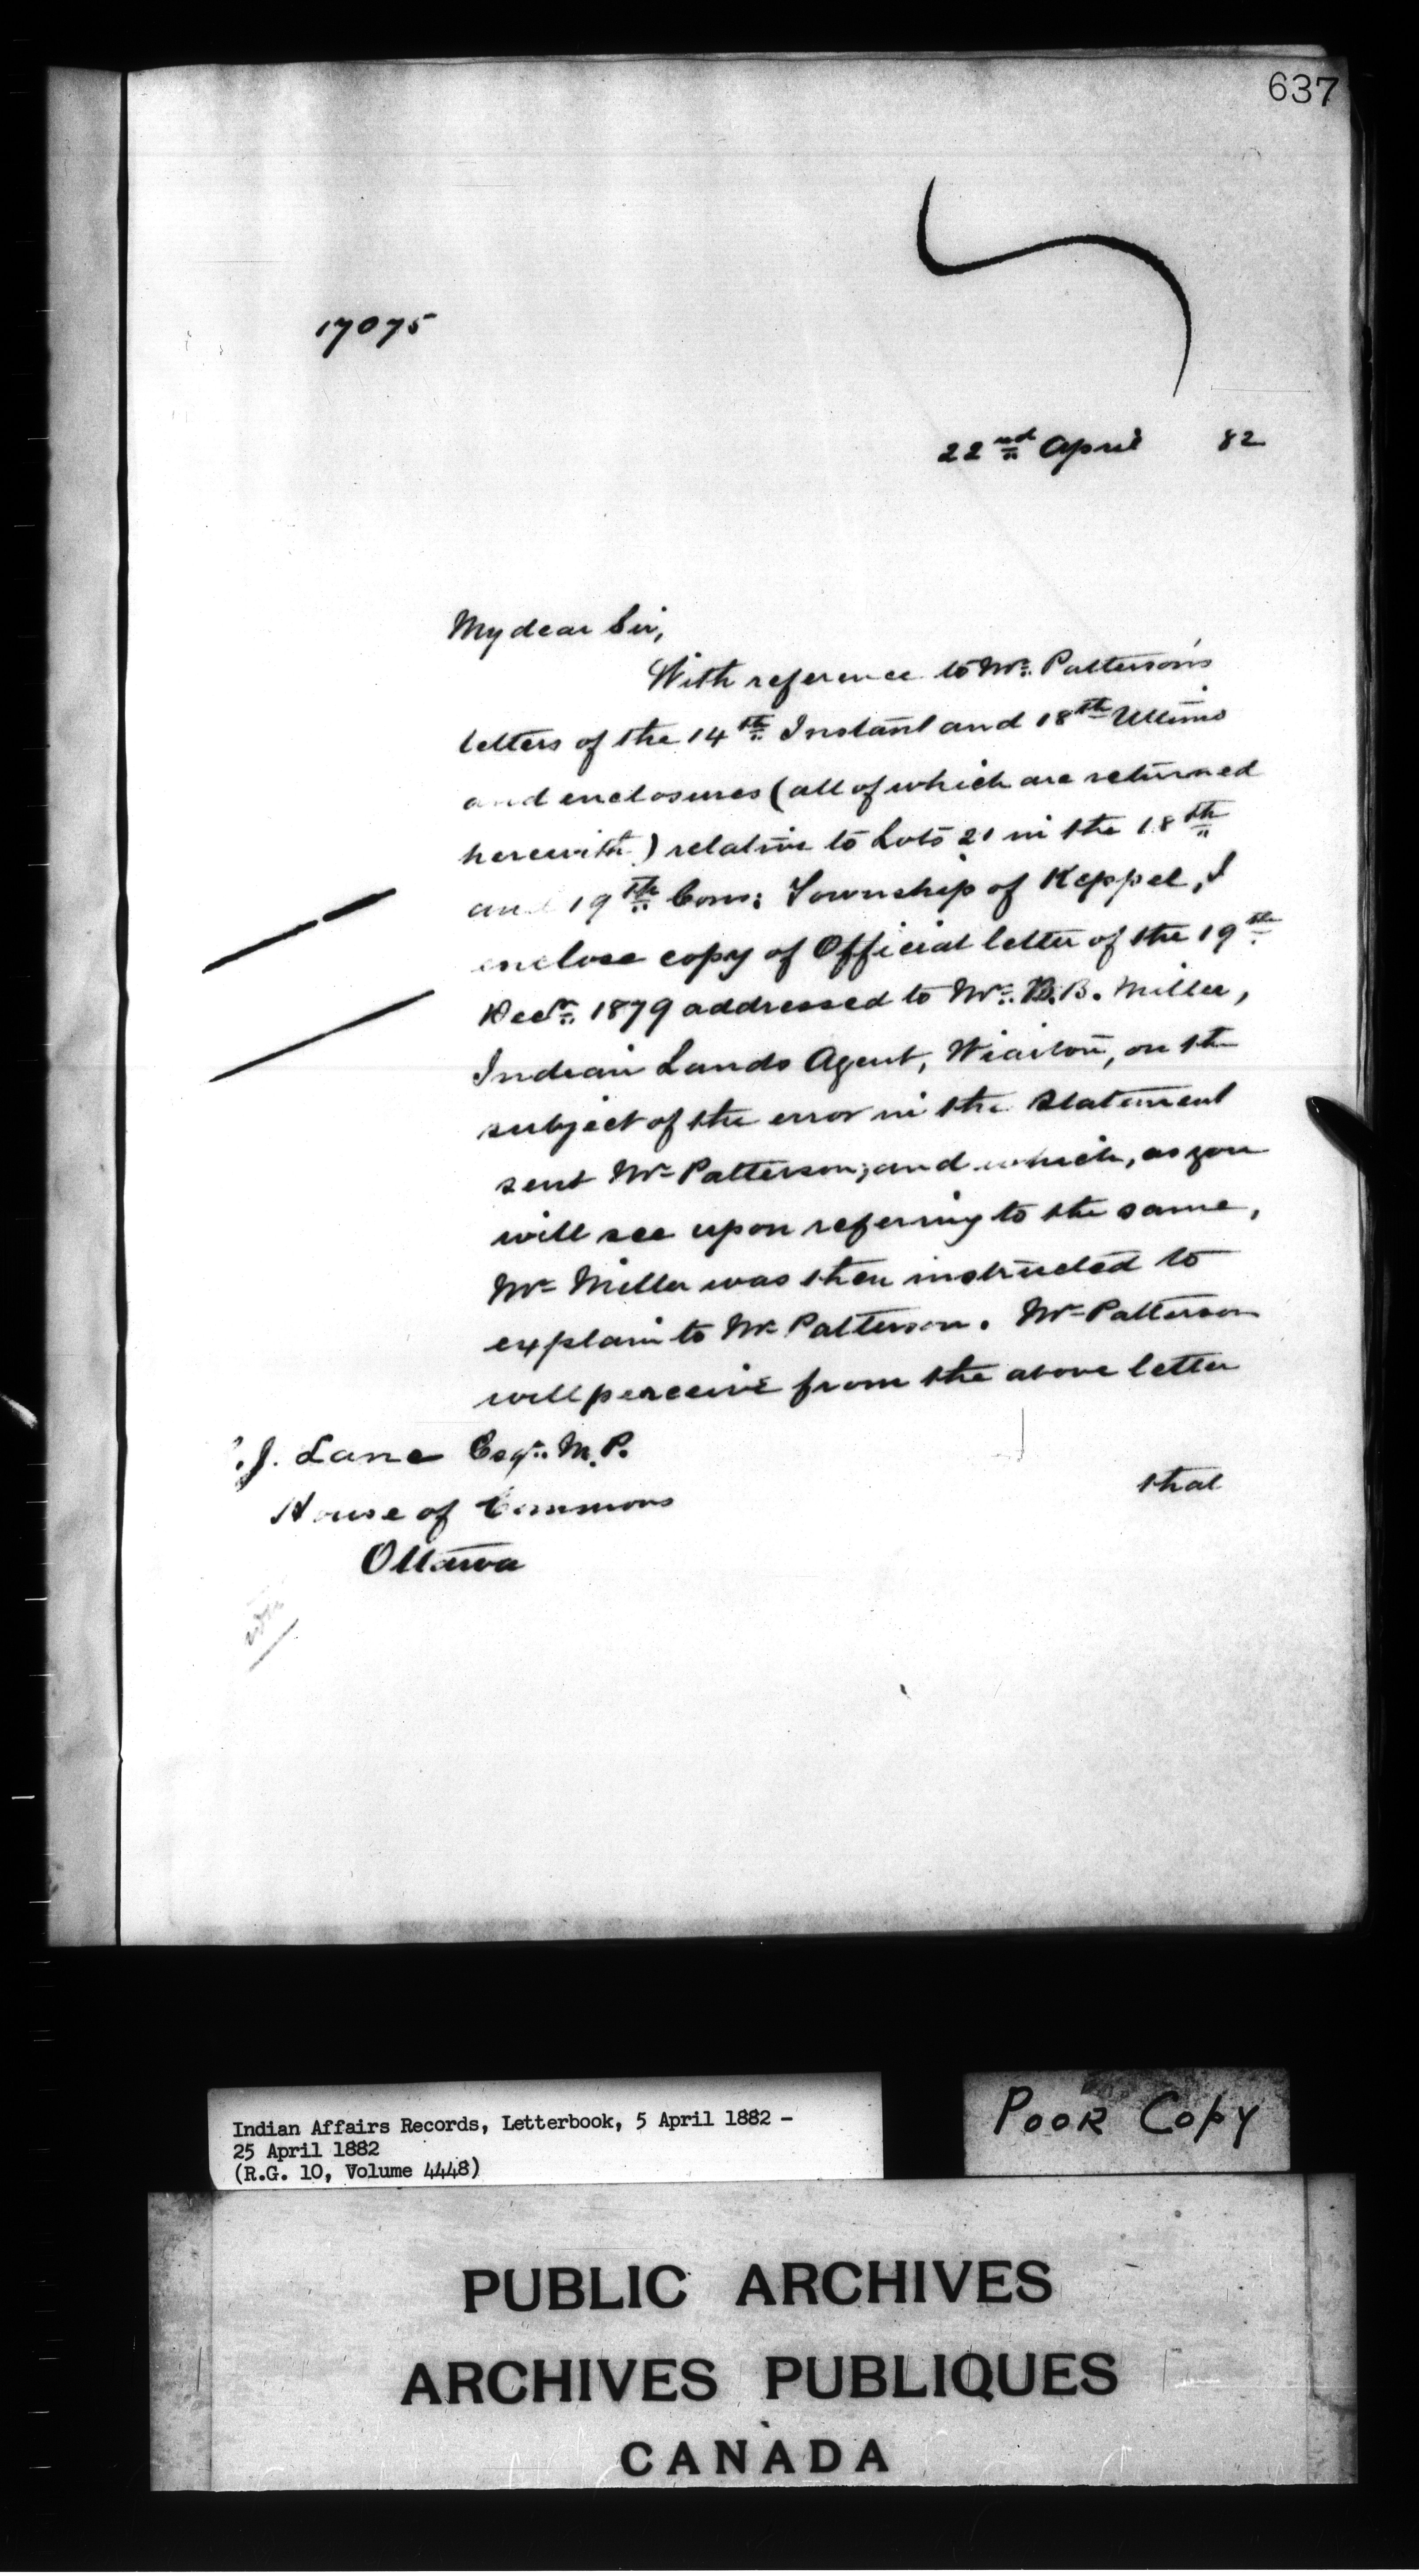 637
17075
22nd April 82
My dear Sir,
With reference to Mr. Patterson's
letters of the 14th Instant and 18th Ultimo
and enclosures (all of which are returned
herewith) relative to Lots 21 in the 18th
and 19th Cons: Township of Keppel, I
enclose copy of Official letter of the 19th
Decr. 1879 addressed to Mr. B. B. Miller,
Indian Lands Agent, Wiarton, on the
subject of the error in the Statement
sent Mr Patterson; and which, as you
will see upon referring to the same,
Mr Miller was then instructed to
explain to Mr Patterson. Mr Patterson
will perceive from the above letter
J. Lane Esqr. M.P.
that
House of Commons
Ottawa
Indian Affairs Records, Letterbook, 5 April 1882 -
25 April 1882
(R.G. 10, Volume 4448)
POOR COPY
PUBLIC ARCHIVES
ARCHIVES PUBLIQUES
CANADA